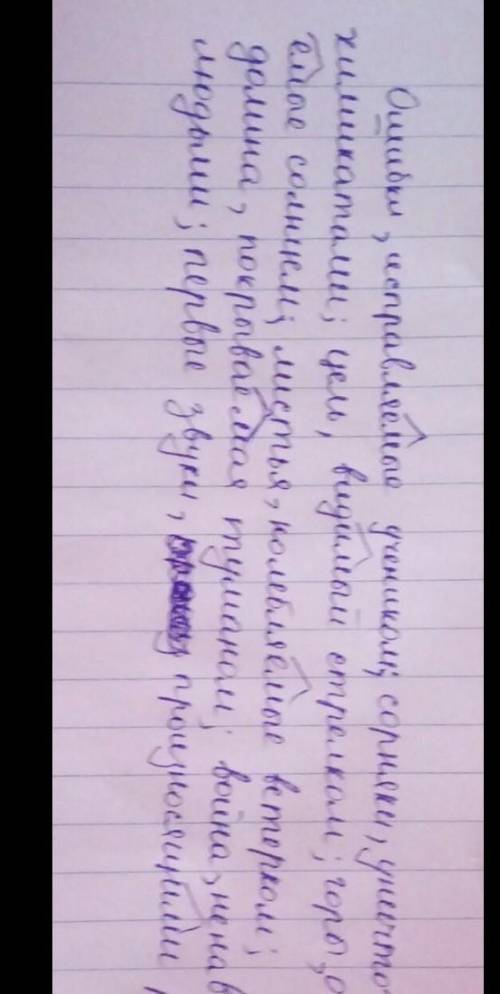 Ошибки, исправляемые учеником; сорняки, уничто
химикатами; цель, видимый стрелком; горы, о
емые солнцем; листья, колебляемые ветерком;
долина, покрываемая туманом; война, ненав
людьми; первые звуки, произносящимы